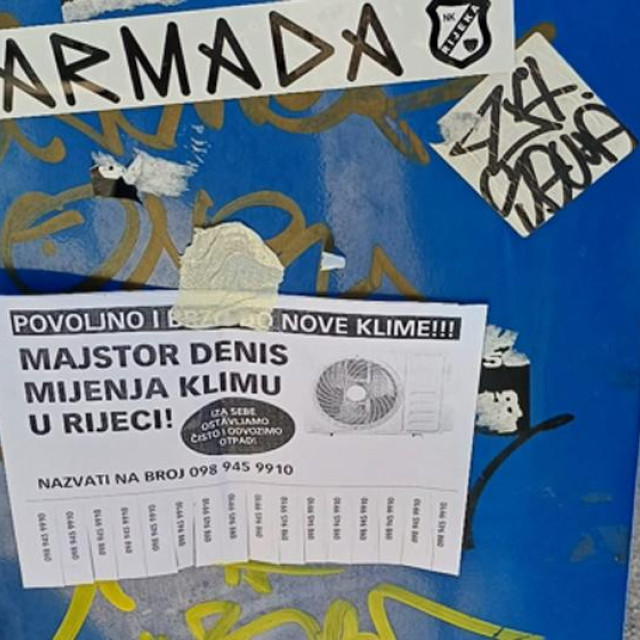 ARMADA
NK
RIJEKA
POVOLJNO I BRZO DO NOVE KLIME!!!
MAJSTOR DENIS
MIJENJA KLIMU
U RIJECI!
IZA SEBE
OSTAVLJAMO
ČISTO I ODVOZIMO
OTPAD!
NAZVATI NA BROJ 098 945 9910
098 945 9910
098 945 9910
098 945 9910
098 945 9910
098 945 9910
098 945 9910
098 945 9910
098 945 9910
098 945 9910
098 945 9910
098 945 9910
098 945 9910
098 945 9910
098 945 9910
098 945 9910
098 945 9910